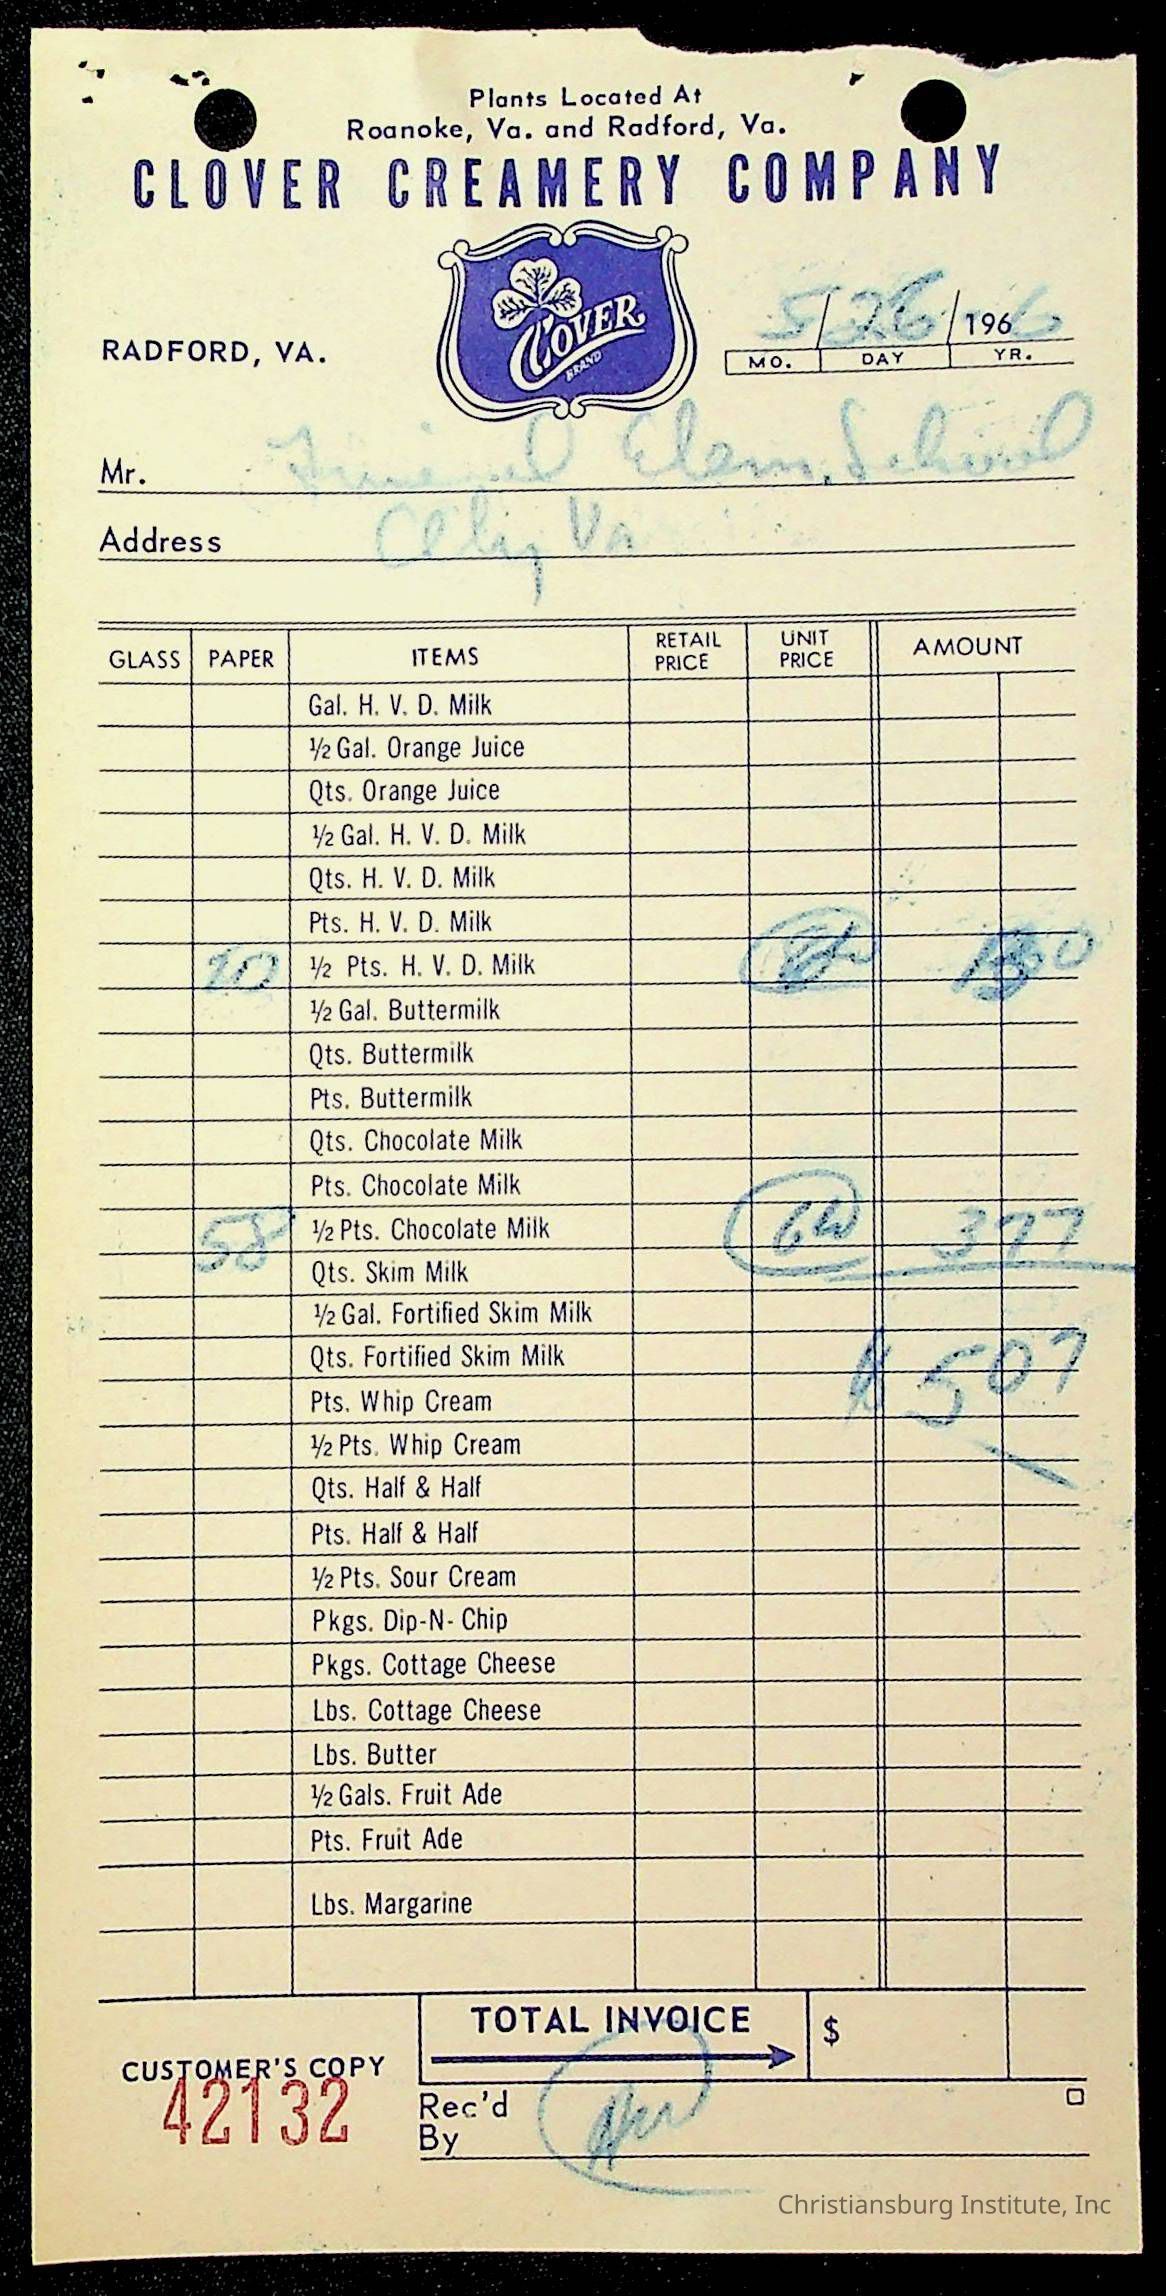 Plants Located At
Roanoke, Va. and Radford, Va.
CLOVER CREAMERY COMPANY
CLOVER
BRAND
RADFORD, VA.
5/26/1966
MO. DAY YR.
Mr. Elem. School
Address Va
GLASS PAPER ITEMS RETAIL PRICE UNIT PRICE AMOUNT
Gal. H. V. D. Milk
½ Gal. Orange Juice
Qts. Orange Juice
½ Gal. H. V. D. Milk
Qts. H. V. D. Milk
Pts. H. V. D. Milk
20 ½ Pts. H. V. D. Milk
½ Gal. Buttermilk
Qts. Buttermilk
Pts. Buttermilk
Qts. Chocolate Milk
Pts. Chocolate Milk
58 ½ Pts. Chocolate Milk 6½ 377
Qts. Skim Milk
½ Gal. Fortified Skim Milk
Qts. Fortified Skim Milk $507
Pts. Whip Cream
½ Pts. Whip Cream
Qts. Half & Half
Pts. Half & Half
½ Pts. Sour Cream
Pkgs. Dip-N-Chip
Pkgs. Cottage Cheese
Lbs. Cottage Cheese
Lbs. Butter
½ Gals. Fruit Ade
Pts. Fruit Ade
Lbs. Margarine
TOTAL INVOICE $
CUSTOMER'S COPY
42132
Rec'd
By
Christiansburg Institute, Inc